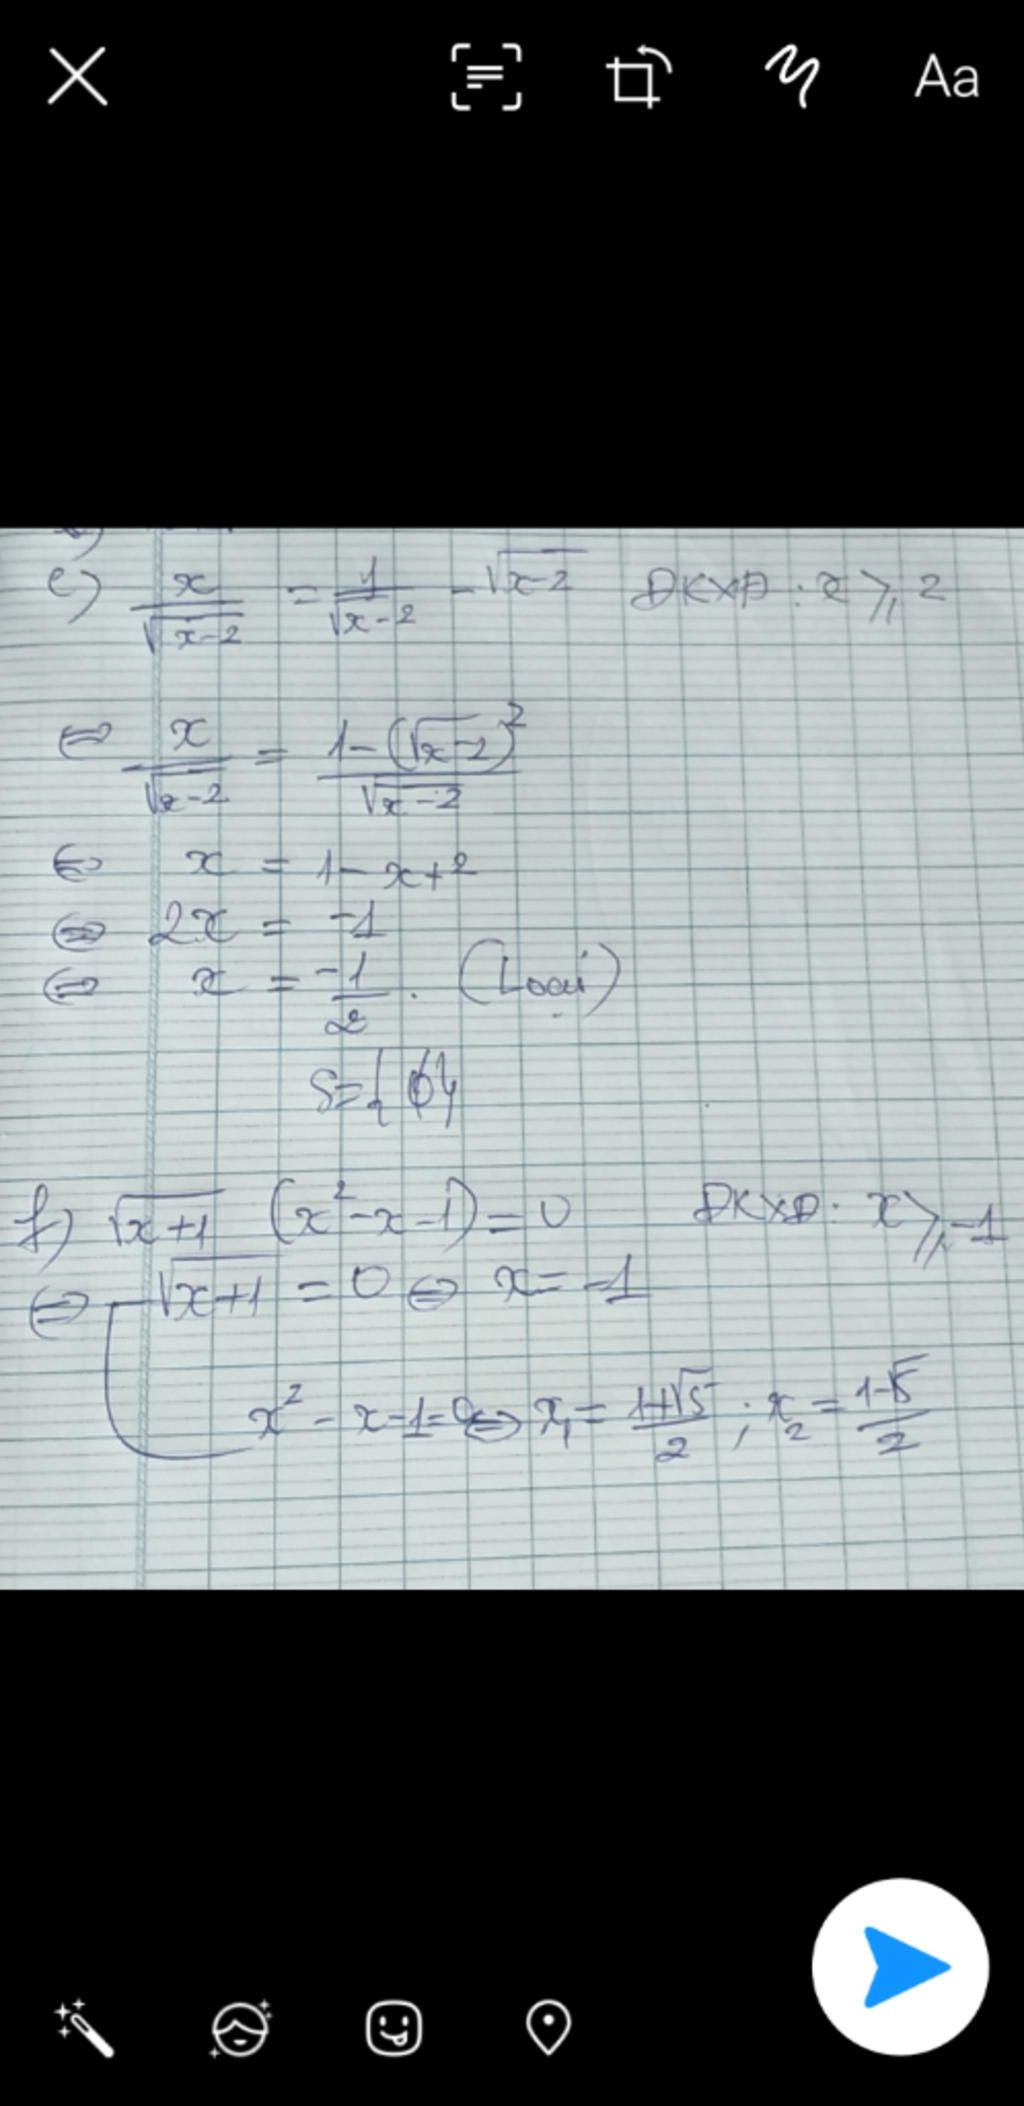 Aa
e) x/√(x-2) = 1/√(x-2) - √(x-2) ĐKXĐ: x ⩾ 2
⇔ x/√(x-2) = (1-(√(x-2))²)/√(x-2)
⇔ x = 1-x+2
⇔ 2x = -1
⇔ x = -1/2. (Loại)
S={∅}
f) √(x+1) (x²-x-1)=0 ĐKXĐ: x ⩾ -1
⇔ √(x+1) = 0 ⇔ x = -1
x² - x-1=0 ⇔ x₁ = (1+√5)/2 ; x₂ = (1-√5)/2